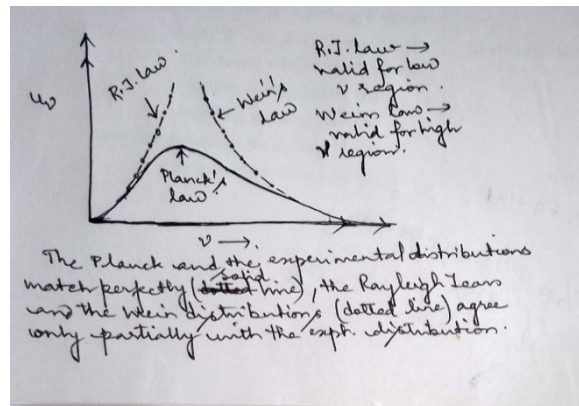 R.J. law
Wein's
Law
Planck's
law
uν
ν →
R.J. law →
valid for low
ν region.
Wein law →
valid for high
ν region.
The Planck and the experimental distributions
match perfectly (solid line), the Rayleigh Jeans
and the Wein distributions (dotted line) agree
only partially with the expt. distribution.